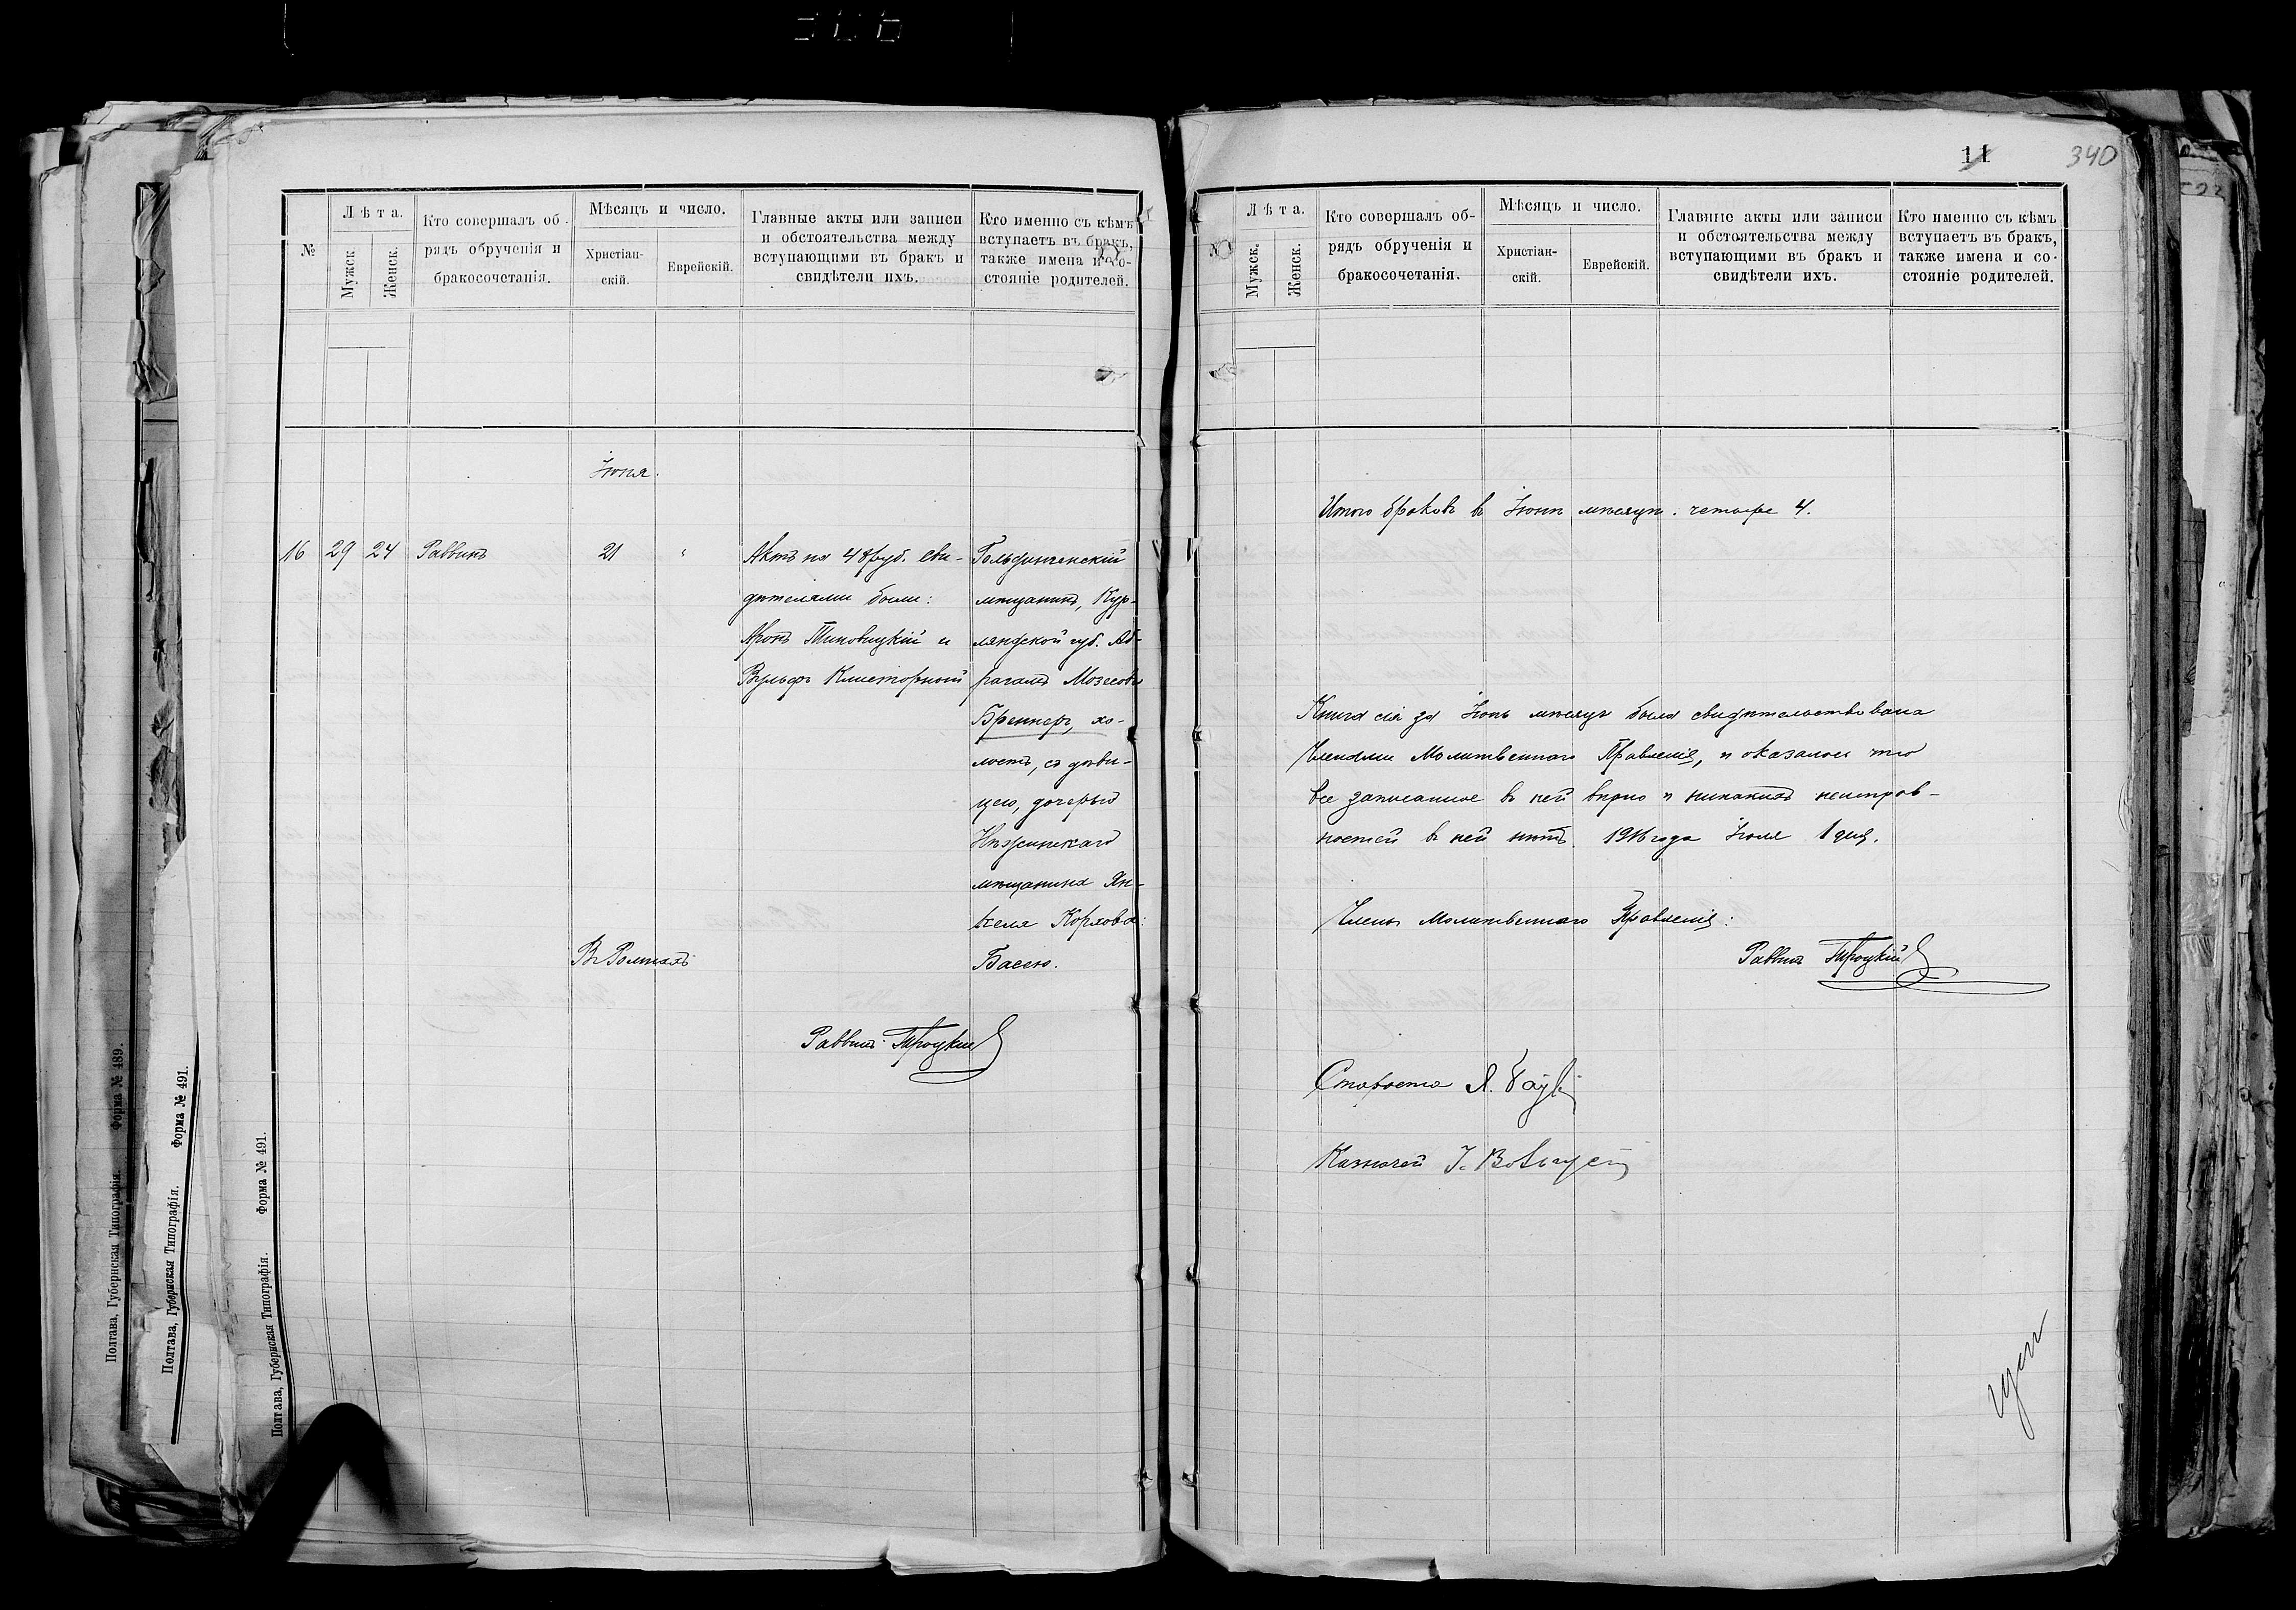 №
Лѣта.
Мужск.
Женск.
Кто совершалъ об-
рядъ обрученія и
бракосочетанія.
Мѣсяцъ и число.
Христіан-
скій.
Еврейскій.
Главные акты или записи
и обстоятельства между
вступающими въ бракъ и
свидѣтели ихъ.
Кто именно съ кѣмъ
вступаетъ въ бракъ,
также имена и со-
стояніе родителей.
Іюня.
16 29 24 Раввинъ 21 "
Актъ на 48 руб. сви-
дѣтелями были:
Аронъ Тиновицкій и
Вульфъ Клисторный
Гольдингенскій
мѣщанинъ, Кур-
ляндской губ. Аб-
рагамъ Мозесовъ
Бреннеръ, хо-
лостъ, съ дѣви-
цею, дочерью
Нѣжинскаго
мѣщанина Ян-
келя Корхова:
Басею.
Въ Ромнахъ
Раввинъ Троцкій
Полтава, Губернская Типографія. Форма № 489.
Полтава, Губернская Типографія. Форма № 491.
Полтава, Губернская Типографія. Форма № 491.
11
340
№
Лѣта.
Мужск.
Женск.
Кто совершалъ об-
рядъ обрученія и
бракосочетанія.
Мѣсяцъ и число.
Христіан-
скій.
Еврейскій.
Главные акты или записи
и обстоятельства между
вступающими въ бракъ и
свидѣтели ихъ.
Кто именно съ кѣмъ
вступаетъ въ бракъ,
также имена и со-
стояніе родителей.
Итого браковъ въ Іюнѣ мѣсяцѣ. четыре 4.
Книга сія за Іюнь мѣсяцъ была свидѣтельствована
Членами Молитвеннаго Правленія, и оказалось что
все записанное въ ней вѣрно и никакихъ неисправ-
ностей въ ней нѣтъ. 1916 года Іюля 1 дня.
Члены Молитвеннаго Правленія:
Раввинъ Троцкій
Староста Я.
Казначей І.